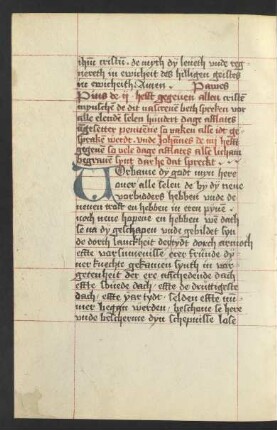 ihm cristū. de myth dy leueth vnde reg
nereth in ewicheit des hilligen geistes
in ewicheith Amen. Pawes
Pius de ij hefft gegeuen allen cristē
mynschē de dit nascreuē beth spreken vor
alle elende selen hundert dage afflates
vgesetter penitencie so vaken alse idt ge
spraket werdt. vnde Johānes de iiij hefft
gegeuē so vele dage afflates alse licham
begrauē synt dar he dat spreckt
barme dy godt myn here
auer alle selen de by dy nene
vorbidders hebben vnde de
nenen trost en hebben in erer pynē
noch nene hapene en hebben wē dath
se na dy geschapen vnde gebildet syn
de dorch lanckheit der tydt dorch armoth
effte vorsumenisse erer frunde dy
ner knechte gekamen synth in vor
getenheit der ere affschedende dach
effte souede dach effte de druttigeste
dach effte yar tydt selden effte nū
mer began werden beschone se here
vnde bescherme dyn scheppnisse lose